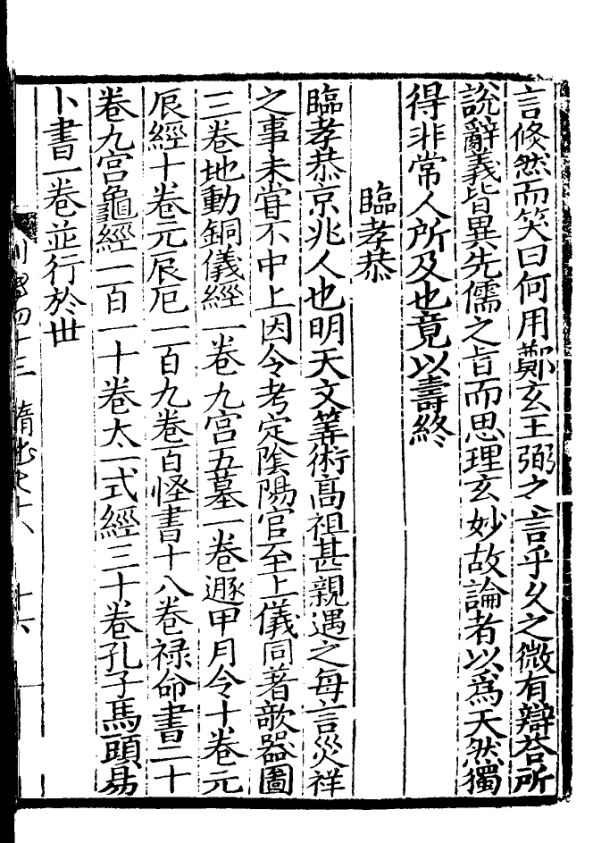 言倏然而笑曰何用鄭玄王弼之言乎久之微有辯荅所
說辭義皆異先儒之旨而思理玄妙故論者以爲天然獨
得非常人所及也竟以壽終
臨孝恭
臨孝恭京兆人也明天文筭術高祖甚親遇之每言災祥
之事未甞不中上因令考定陰陽官至上儀同著欹器圖
三卷地動銅儀經一卷九宫五墓一卷遯甲月令十卷元
辰經十卷元辰厄一百九卷百怪書十八卷禄命書二十
卷九宫龜經一百一十卷太一式經三十卷孔子馬頭易
卜書一卷並行於世
四十三